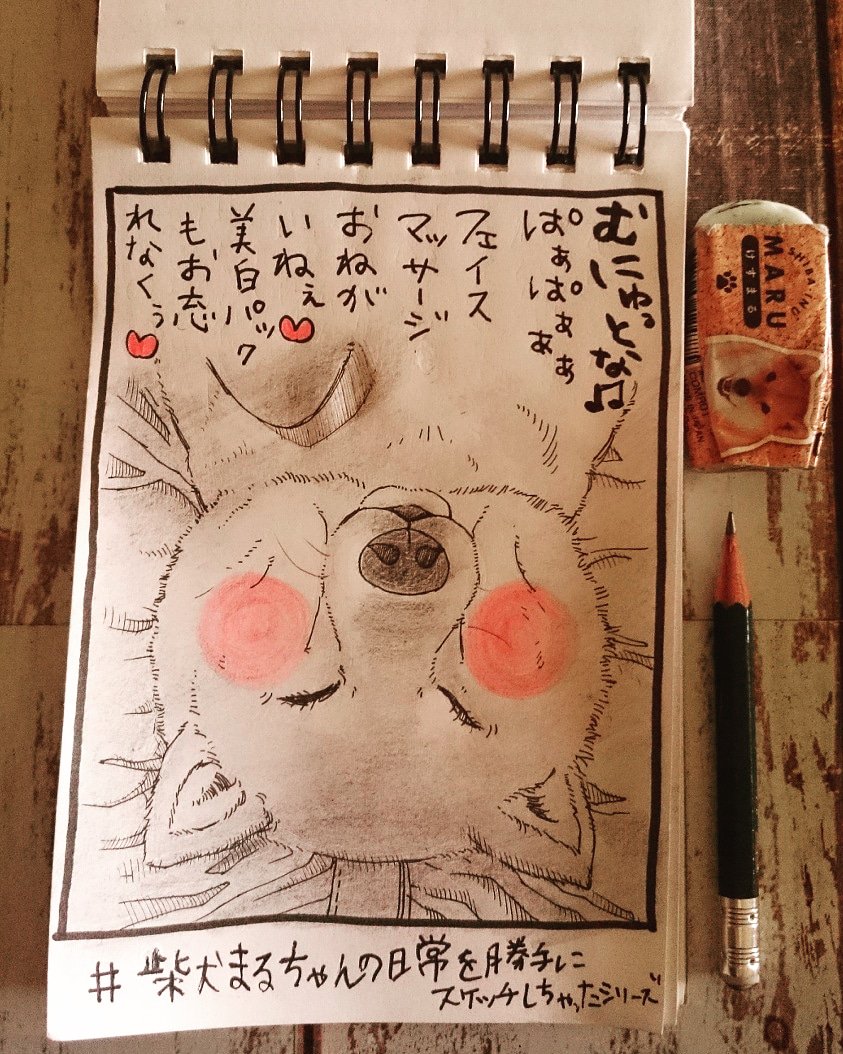 むにゅっとな♫
ぱぁぱぁぁぁ
フェイス
マッサージ
おねが
いねぇ♥
美白パック
もお忘
れなくぅ♥
#柴犬まるちゃんの日常を勝手に
スケッチしちゃったシリーズ
SHIBA INU
MARU
けすまる
JAPAN